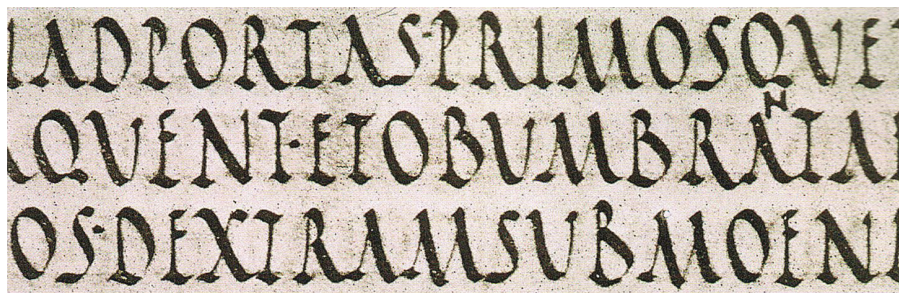 IADPORTAS·PRIMOSQVET
RQVENT·ETOBVMBRANTAE
OS·DEXTRAMSVBMOENI